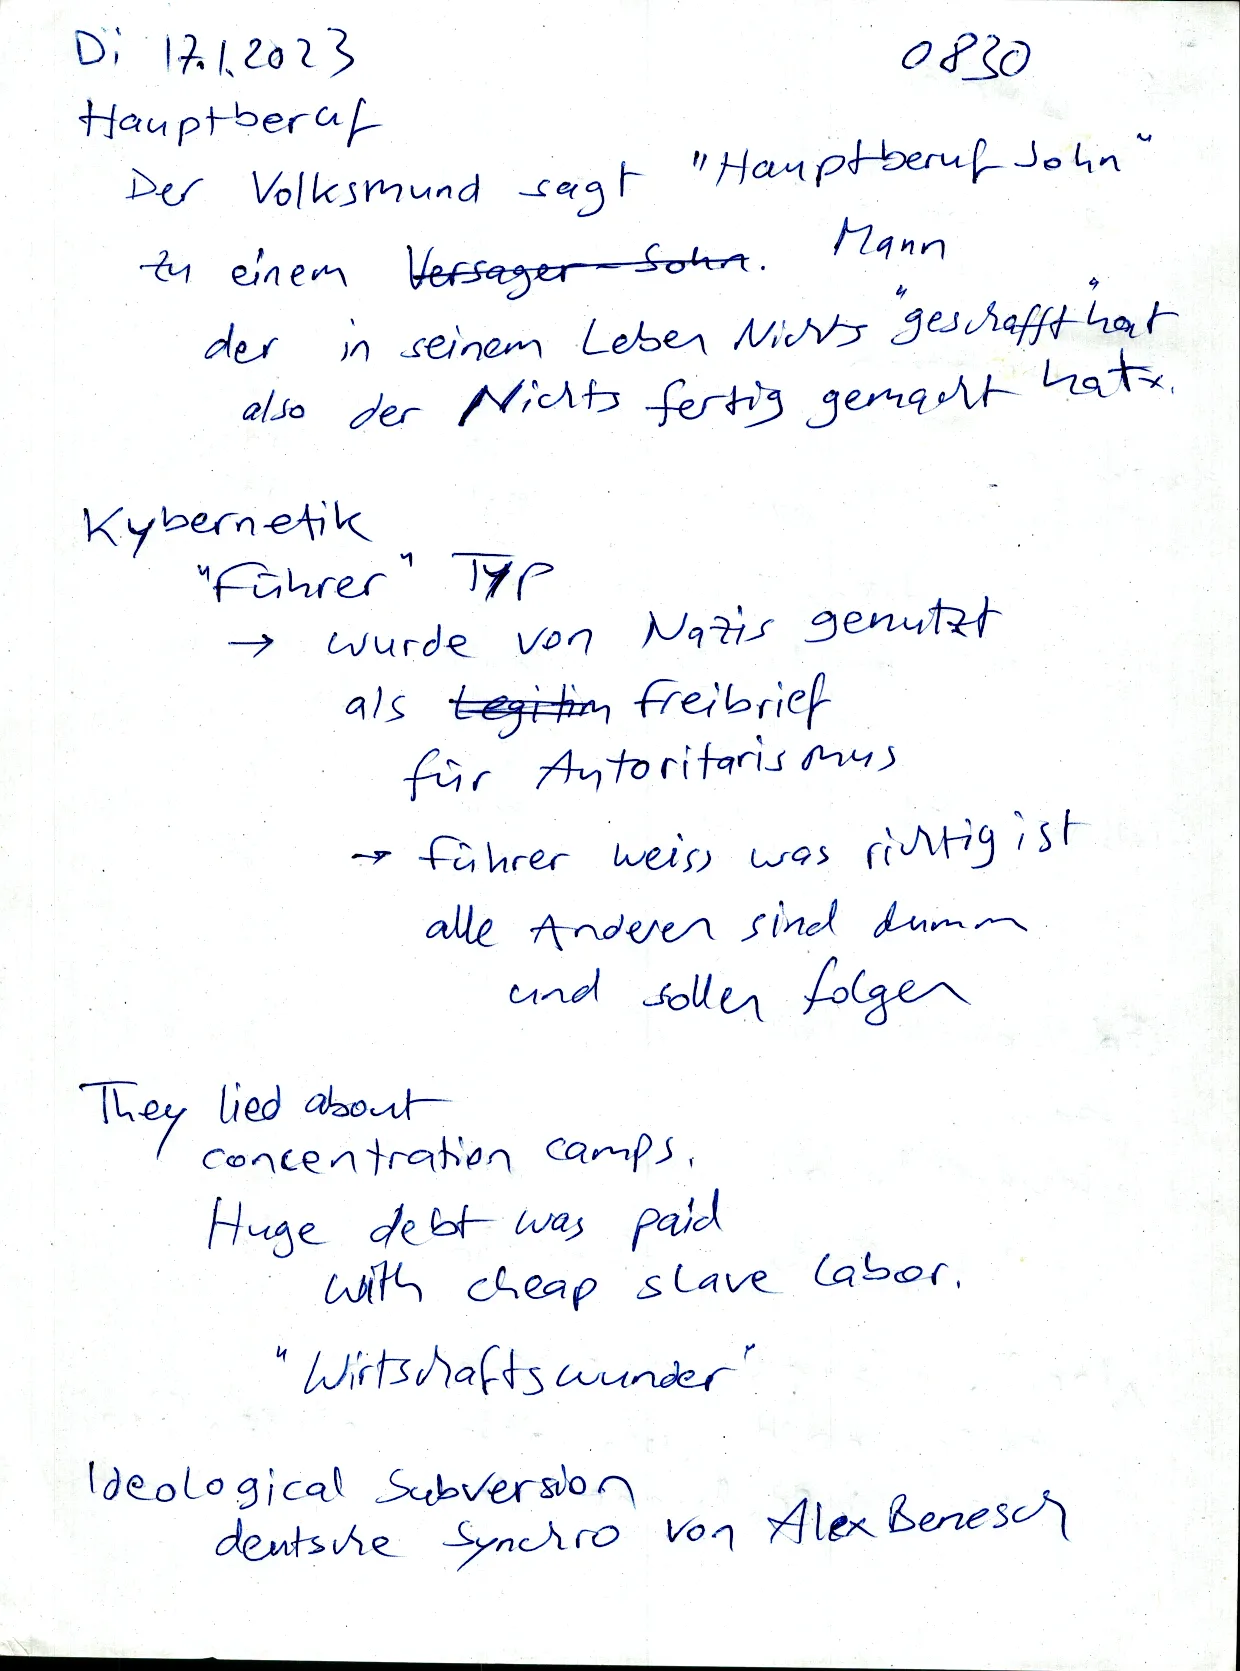 Di 17.1.2023 0830
Hauptberuf
Der Volksmund sagt "Hauptberuf Sohn"
zu einem ~~Versager-Sohn.~~ Mann
der in seinem Leben Nichts "geschafft" hat
also der Nichts fertig gemacht hat.
Kybernetik
"Führer" Typ
→ wurde von Nazis genutzt
als ~~Legitim~~ Freibrief
für Autoritarismus
→ Führer weiss was richtig ist
alle Anderen sind dumm
und sollen folgen
They lied about
concentration camps.
Huge debt was paid
with cheap slave labor.
"Wirtschaftswunder"
Ideological Subversion
deutsche Synchro von Alex Benesch